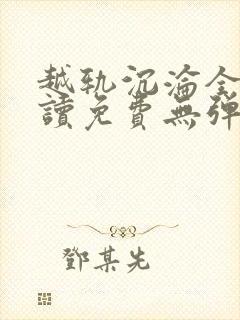 越軌沉淪全
讀免費無彈
鄧某先